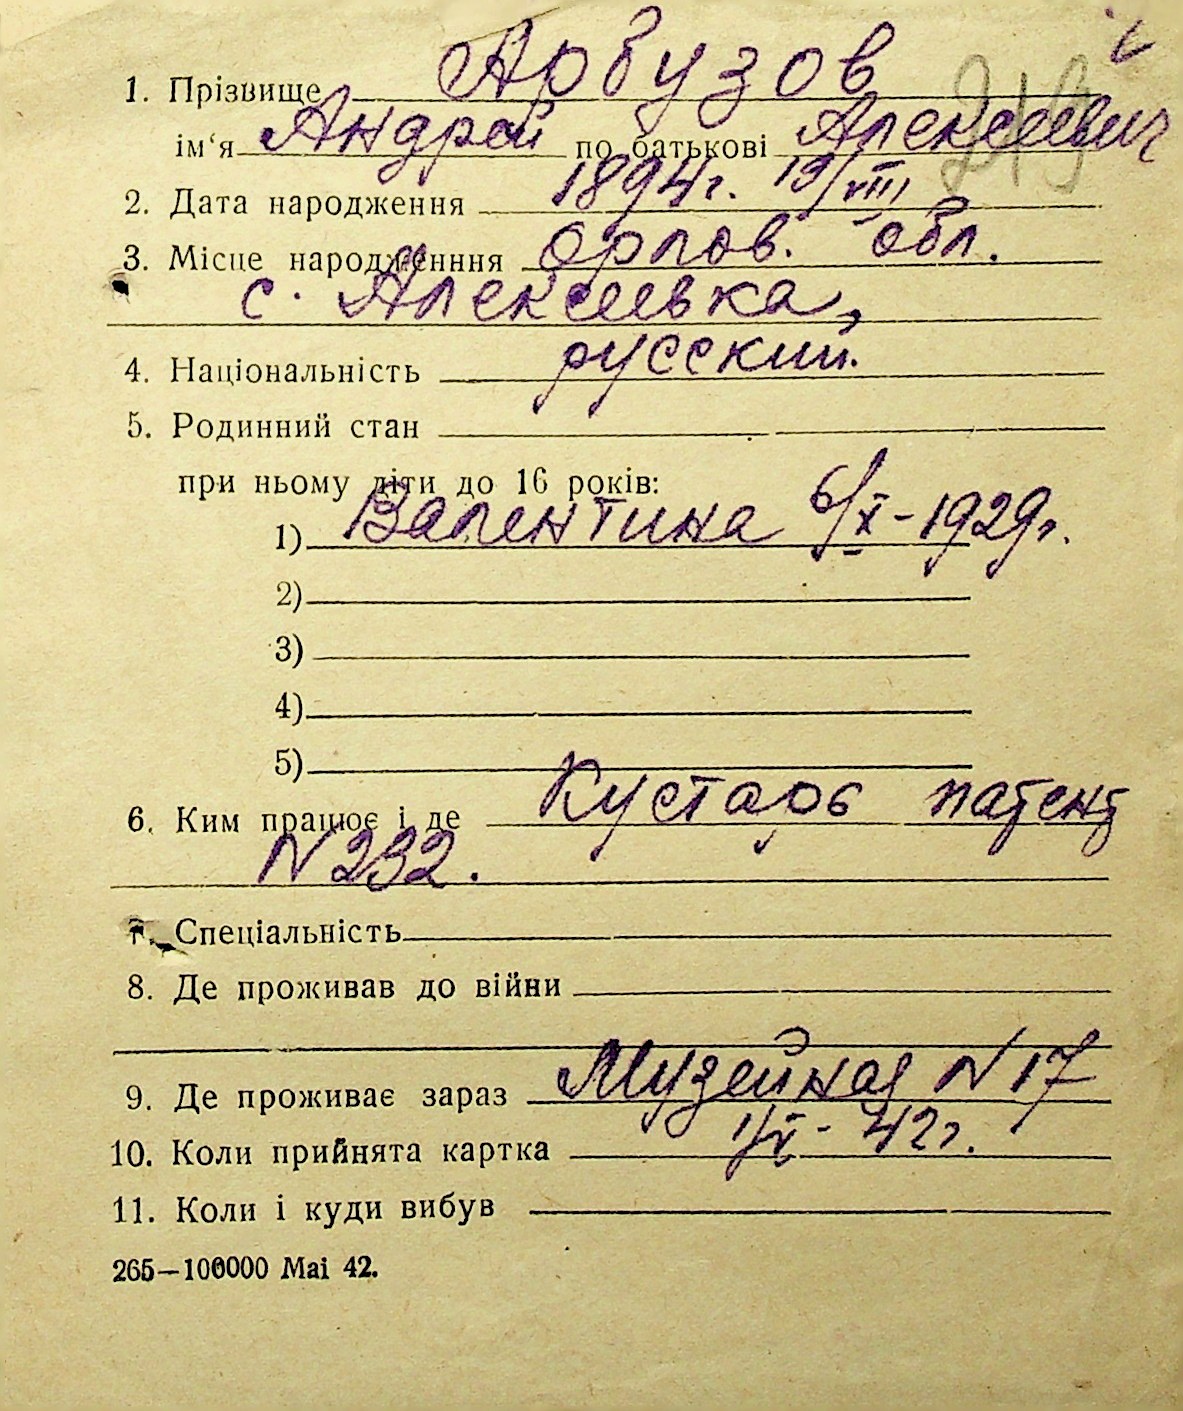 1. Прізвище Арбузов
ім'я Андрей по батькові Алексеевич
2. Дата народження 1894г. 19/VIII
3. Місце народженння Орлов. обл.
с. Алексеевка,
4. Національність русский.
5. Родинний стан
при ньому діти до 16 років:
1) Валентина 6/X-1929г.
2)
3)
4)
5)
6. Ким працює і де Кустарь патент
N 232.
7. Спеціальність
8. Де проживав до війни
9. Де проживає зараз Музейная N 17
10. Коли прийнята картка 1/V- 42г.
11. Коли і куди вибув
265—100000 Маі 42.